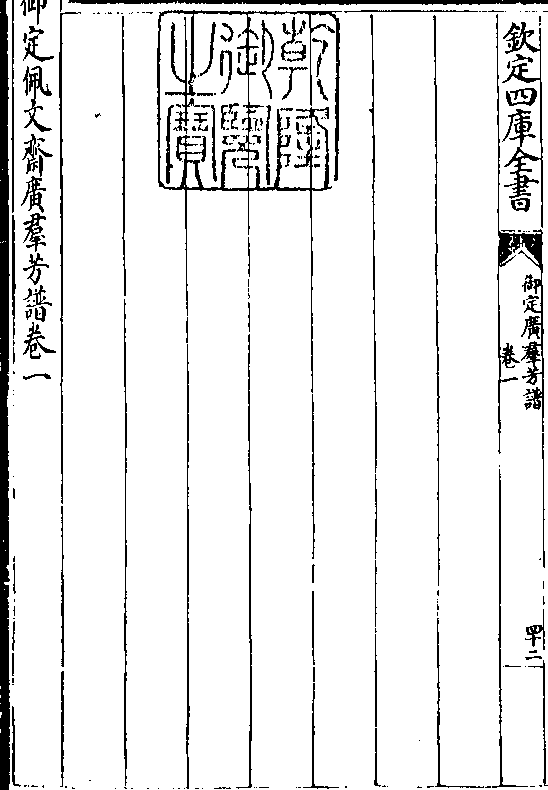 欽定四庫全書
御定廣羣芳譜
卷一
四十二
乾隆
御覽
之寶
御定佩文齋廣羣芳譜卷一